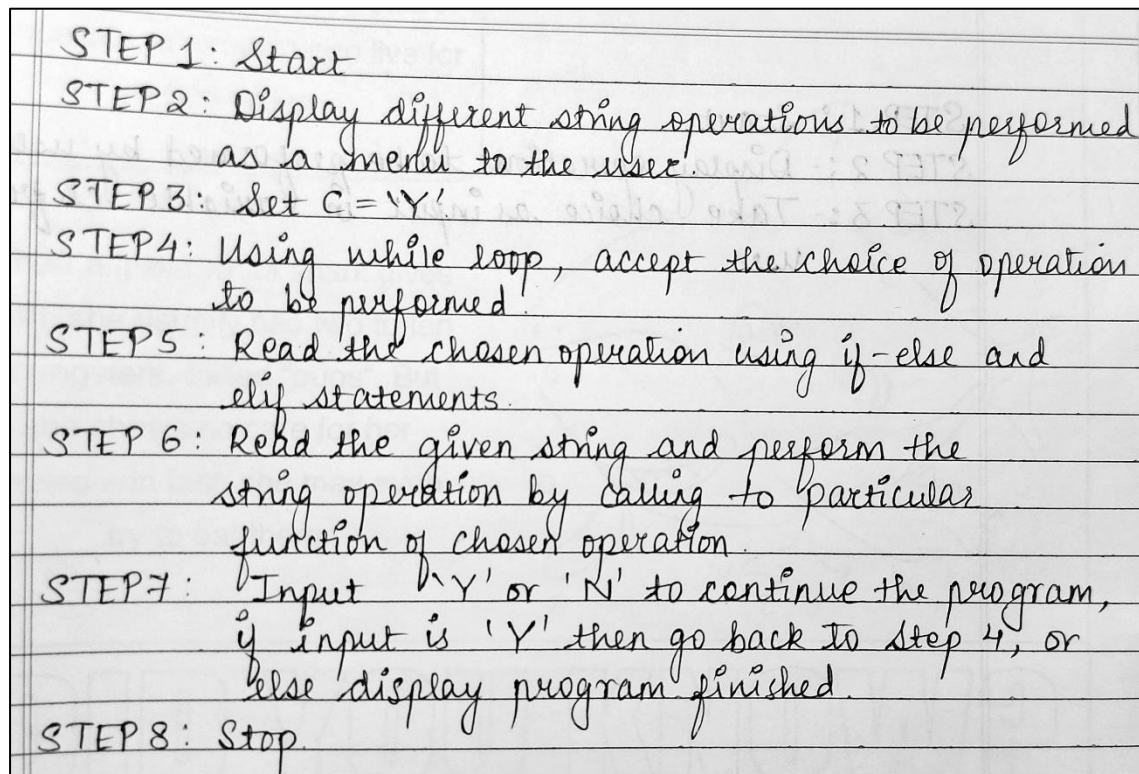 STEP 1: Start
STEP 2: Display different string operations to be performed
as a menu to the user.
STEP 3: Set C = 'Y'
STEP 4: Using while loop, accept the choice of operation
to be performed.
STEP 5: Read the chosen operation using if-else and
elif statements.
STEP 6: Read the given string and perform the
string operation by calling to particular
function of chosen operation.
STEP 7: Input 'Y' or 'N' to continue the program,
if input is 'Y' then go back to step 4, or
else display program finished.
STEP 8: Stop.